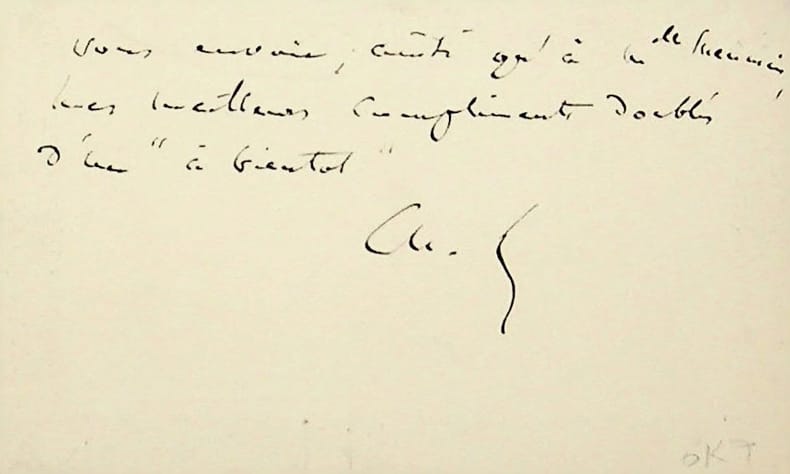 vous envoie, ainsi qu'à M
mes meilleurs compliments doublés
d'un "à bientot"
Ch. G
OKT